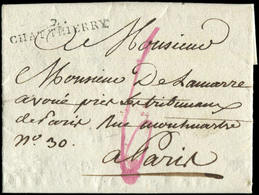 2
CHAU-THIERRY
A Monsieur
Monsieur De Lamarre
avoué près les tribunaux
de Paris rue montmartre
n.o 30.
a Paris